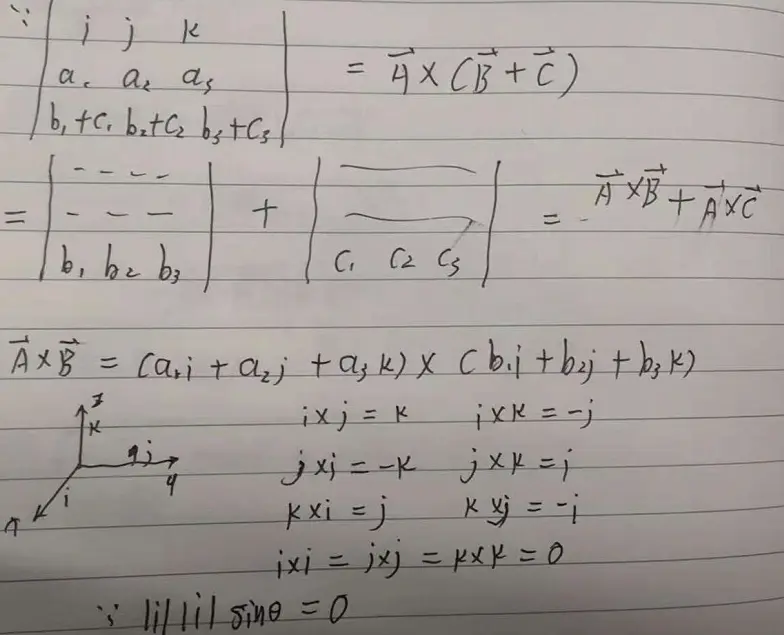 ∵ | i j k |
| a₁ a₂ a₃ | = A⃗ × (B⃗ + C⃗)
| b₁+c₁ b₂+c₂ b₃+c₃ |
= | ---- | + | —— | = A⃗×B⃗ + A⃗×C⃗
| --- | | —— |
| b₁ b₂ b₃ | | c₁ c₂ c₃ |
A⃗×B⃗ = (a₁i + a₂j + a₃k) × (b₁i + b₂j + b₃k)
z
k
j
y
i
x
i×j = k i×k = -j
j×i = -k j×k = i
k×i = j k×j = -i
i×i = j×j = k×k = 0
∵ |i| |i| sinθ = 0